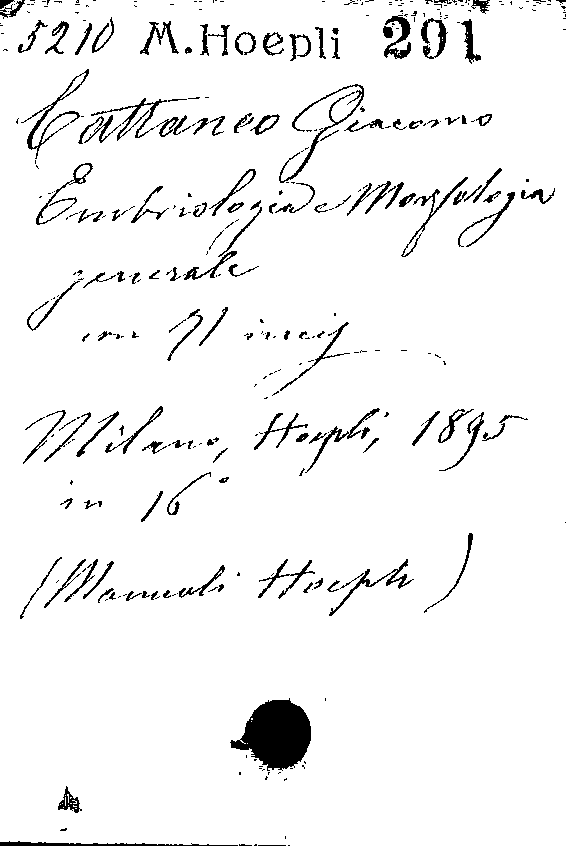 5210 M. Hoepli 291
Cattaneo Giacomo
Embriologia e Morfologia
generale
con 71 incis
Milano, Hoepli, 1895
in 16°
(Manuali Hoepli)